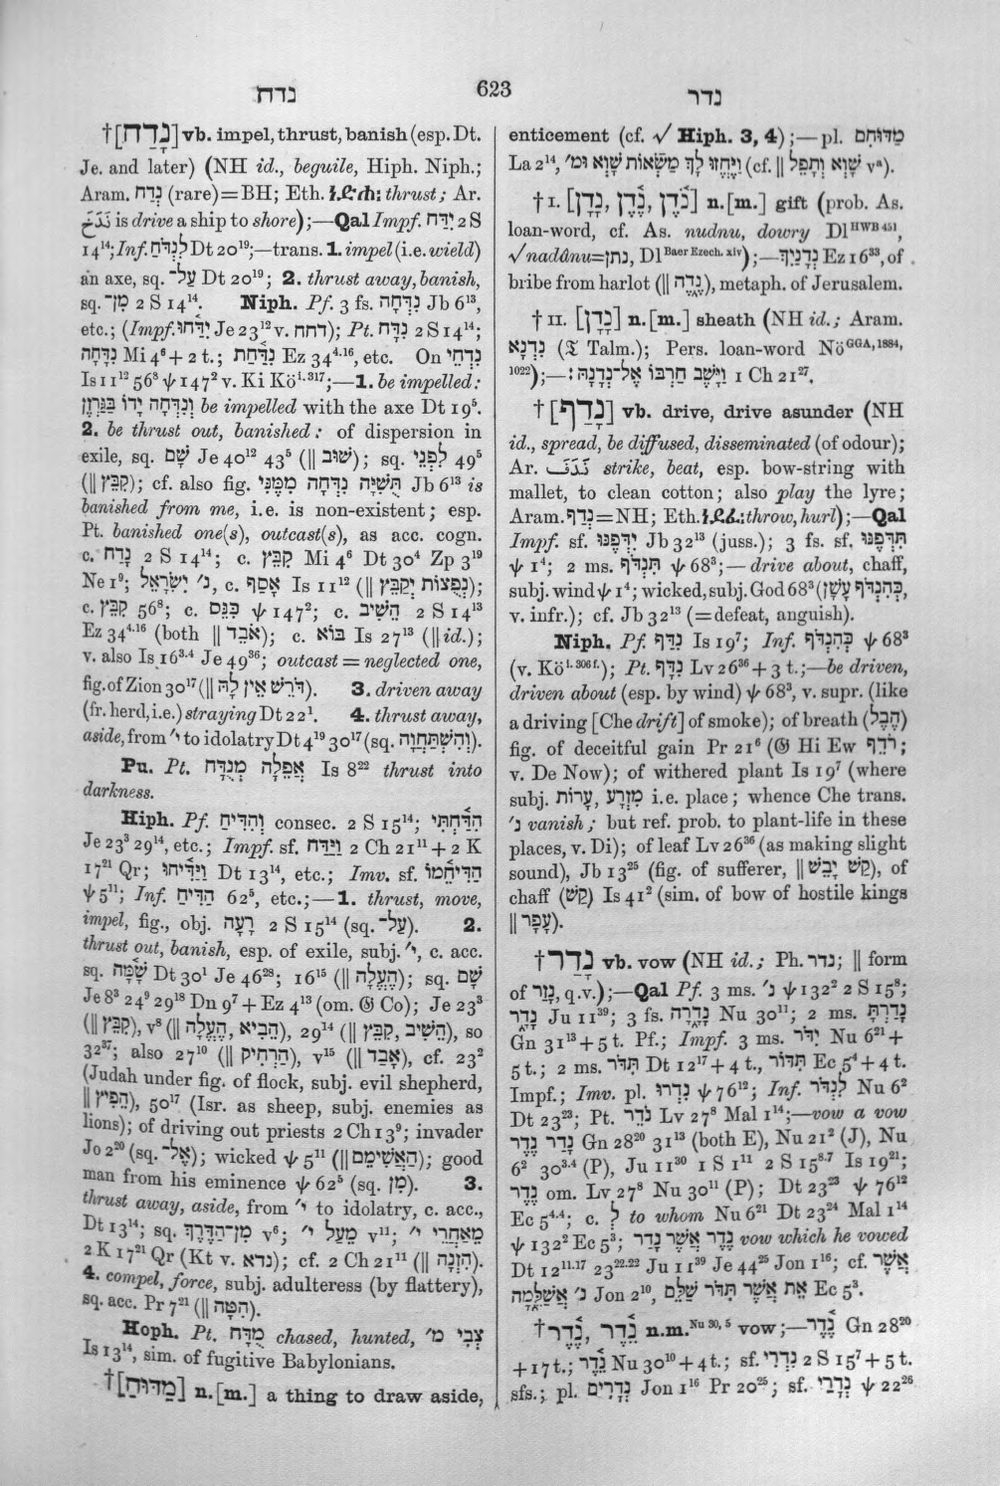 נדח
623
נדר
†[נָדַח] vb. impel, thrust, banish (esp. Dt.
Je. and later) (NH id., beguile, Hiph. Niph.;
Aram. נְדַח (rare)=BH; Eth. thrust; Ar.
is drive a ship to shore);—Qal Impf. יִדַּח 2 S
14¹⁴; Inf. לִנְדֹּחַ Dt 20¹⁹;—trans. 1. impel (i.e. wield)
an axe, sq. עַל־ Dt 20¹⁹; 2. thrust away, banish,
sq. מִן־ 2 S 14¹⁴. Niph. Pf. 3 fs. נִדְּחָה Jb 6¹³,
etc.; (Impf. יִדַּחוּ Je 23¹² v. דחח); Pt. נִדָּח 2 S 14¹⁴;
נִדָּחָה Mi 4⁶ + 2 t.; נִדַּחַת Ez 34⁴·¹⁶, etc. On נִדְחֵי
Is 11¹² 56⁸ ψ 147² v. Ki Kö i.317;—1. be impelled:
וְנִדְּחָה יָדוֹ בַגַּרְזֶן be impelled with the axe Dt 19⁵.
2. be thrust out, banished: of dispersion in
exile, sq. שָׁם Je 40¹² 43⁵ (‖ שׁוּב); sq. לְפָנַי 49⁵
(‖ קִבֵּץ); cf. also fig. תֻּשִׁיָּה נִדְּחָה מִמֶּנִּי Jb 6¹³ is
banished from me, i.e. is non-existent; esp.
Pt. banished one(s), outcast(s), as acc. cogn.
c. נָדַח 2 S 14¹⁴; c. קִבֵּץ Mi 4⁶ Dt 30⁴ Zp 3¹⁹
Ne 1⁹; נ׳ יִשְׂרָאֵל, c. אָסַף Is 11¹² (‖ נְפֻצוֹת יְקַבֵּץ);
c. קִבֵּץ 56⁸; c. כִּנֵּם ψ 147²; c. הֵשִׁיב 2 S 14¹³
Ez 34⁴·¹⁶ (both ‖ אֹבֵד); c. בּוֹא Is 27¹³ (‖ id.);
v. also Is 16³·⁴ Je 49³⁶; outcast = neglected one,
fig. of Zion 30¹⁷ (‖ דֹּרֵשׁ אֵין לָהּ). 3. driven away
(fr. herd, i.e.) straying Dt 22¹. 4. thrust away,
aside, from י׳ to idolatry Dt 4¹⁹ 30¹⁷ (sq. וְהִשְׁתַּחֲוָה).
Pu. Pt. אֲפֵלָה מְנֻדָּח Is 8²² thrust into
darkness.
Hiph. Pf. וְהִדִּיחַ consec. 2 S 15¹⁴; הִדַּחְתִּי
Je 23³ 29¹⁴, etc.; Impf. sf. וַיַּדַּח 2 Ch 21¹¹ + 2 K
17²¹ Qr; וַיַּדִּיחוּ Dt 13¹⁴, etc.; Imv. sf. הַדִּיחֵמוֹ
ψ 5¹¹; Inf. הַדִּיחַ 62⁵, etc.;—1. thrust, move,
impel, fig., obj. רָעָה 2 S 15¹⁴ (sq. עַל־). 2.
thrust out, banish, esp. of exile, subj. י׳, c. acc.
sq. שָׁמָּה Dt 30¹ Je 46²⁸; 16¹⁵ (‖ הֶעֱלָה); sq. שָׁם
Je 8³ 24⁹ 29¹⁸ Dn 9⁷ + Ez 4¹³ (om. 𝔊 Co); Je 23³
(‖ קִבֵּץ), v⁸ (‖ הֵבִיא, הֶעֱלָה), 29¹⁴ (‖ הֵשִׁיב, קִבֵּץ), so
32³⁷; also 27¹⁰ (‖ הִרְחִיק), v¹⁵ (‖ אָבַד), cf. 23²
(Judah under fig. of flock, subj. evil shepherd,
‖ הֵפִיץ), 50¹⁷ (Isr. as sheep, subj. enemies as
lions); of driving out priests 2 Ch 13⁹; invader
Jo 2²⁰ (sq. אֶל־); wicked ψ 5¹¹ (‖ הַאֲשִׁימֵם); good
man from his eminence ψ 62⁵ (sq. מִן). 3.
thrust away, aside, from י׳ to idolatry, c. acc.,
Dt 13¹⁴; sq. מִן־הַדֶּרֶךְ v⁶; מֵעַל י׳ v¹¹; מֵאַחֲרֵי י׳
2 K 17²¹ Qr (Kt v. נדא); cf. 2 Ch 21¹¹ (‖ הִזְנָה).
4. compel, force, subj. adulteress (by flattery),
sq. acc. Pr 7²¹ (‖ הִטָּה).
Hoph. Pt. צְבִי מ׳ מֻדָּח chased, hunted,
Is 13¹⁴, sim. of fugitive Babylonians.
†[מַדּוּחַ] n.[m.] a thing to draw aside,
enticement (cf. √ Hiph. 3, 4);—pl. מַדּוּחִם
La 2¹⁴, וַיֶּחֱזוּ לָךְ מַשְׂאוֹת שָׁוְא וּמ׳ (cf. ‖ שָׁוְא וְתָפֵל vᵃ).
†I. [נֵדֶן, נֶדֶן, נָדָן] n.[m.] gift (prob. As.
loan-word, cf. As. nudnu, dowry Dl HWB 451,
√ nadânu=נתן, Dl Baer Ezech. xiv);—נְדָנַיִךְ Ez 16³³, of
bribe from harlot (‖ נֵדֶה), metaph. of Jerusalem.
†II. [נָדָן] n.[m.] sheath (NH id.; Aram.
נִדְנָא (𝔗 Talm.); Pers. loan-word Nö GGA, 1884,
1022);—וַיָּשֶׁב חַרְבּוֹ אֶל־נְדָנָהּ: 1 Ch 21²⁷.
†[נָדַף] vb. drive, drive asunder (NH
id., spread, be diffused, disseminated (of odour);
Ar. نَدَفَ strike, beat, esp. bow-string with
mallet, to clean cotton; also play the lyre;
Aram. נְדַף=NH; Eth. throw, hurl);—Qal
Impf. sf. יִדְּפֶנּוּ Jb 32¹³ (juss.); 3 fs. sf. תִּדְּפֶנּוּ
ψ 1⁴; 2 ms. תִּנְדֹּף ψ 68³;—drive about, chaff,
subj. wind ψ 1⁴; wicked, subj. God 68³ (כְּהִנְדֹּף עָשָׁן,
v. infr.); cf. Jb 32¹³ (=defeat, anguish).
Niph. Pf. נִדַּף Is 19⁷; Inf. כְּהִנְדֹּף ψ 68³
(v. Kö i. 306 f.); Pt. נִדָּף Lv 26³⁶ + 3 t.;—be driven,
driven about (esp. by wind) ψ 68³, v. supr. (like
a driving [Che drift] of smoke); of breath (הֶבֶל)
fig. of deceitful gain Pr 21⁶ (𝔊 Hi Ew רֹדֵף;
v. De Now); of withered plant Is 19⁷ (where
subj. עָרוֹת, מִזְרַע i.e. place; whence Che trans.
נ׳ vanish; but ref. prob. to plant-life in these
places, v. Di); of leaf Lv 26³⁶ (as making slight
sound), Jb 13²⁵ (fig. of sufferer, ‖ קַשׁ יָבֵשׁ), of
chaff (קַשׁ) Is 41² (sim. of bow of hostile kings
‖ עָפָר).
†נָדַר vb. vow (NH id.; Ph. נדר; ‖ form
of נָזַר, q.v.);—Qal Pf. 3 ms. נ׳ ψ 132² 2 S 15⁸;
נָדָר Ju 11³⁹; 3 fs. נָדְרָה Nu 30¹¹; 2 ms. נָדַרְתָּ
Gn 31¹³ + 5 t. Pf.; Impf. 3 ms. יִדֹּר Nu 6²¹ +
5 t.; 2 ms. תִּדֹּר Dt 12¹⁷ + 4 t., תִּדּוֹר Ec 5⁴ + 4 t.
Impf.; Imv. pl. נִדֲרוּ ψ 76¹²; Inf. לִנְדֹּר Nu 6²
Dt 23²³; Pt. נֹדֵר Lv 27⁸ Mal 1¹⁴;—vow a vow
נָדַר נֶדֶר Gn 28²⁰ 31¹³ (both E), Nu 21² (J), Nu
6² 30³·⁴ (P), Ju 11³⁰ 1 S 1¹¹ 2 S 15⁸·⁷ Is 19²¹;
נֶדֶר om. Lv 27⁸ Nu 30¹¹ (P); Dt 23²³ ψ 76¹²
Ec 5⁴·⁴; c. לְ to whom Nu 6²¹ Dt 23²⁴ Mal 1¹⁴
ψ 132² Ec 5³; נֶדֶר אֲשֶׁר נָדַר vow which he vowed
Dt 12¹¹·¹⁷ 23²²·²² Ju 11³⁹ Je 44²⁵ Jon 1¹⁶; cf. אֲשֶׁר
נ׳ אֲשַׁלֵּמָה Jon 2¹⁰, אֵת אֲשֶׁר תִּדֹּר שַׁלֵּם Ec 5³.
†נֶדֶר, נֵדֶר n.m. Nu 30, 5 vow;—נֶדֶר Gn 28²⁰
+17 t.; נֵדֶר Nu 30¹⁰ + 4 t.; sf. נִדְרִי 2 S 15⁷ + 5 t.
sfs.; pl. נְדָרִים Jon 1¹⁶ Pr 20²⁵; sf. נְדָרַי ψ 22²⁶